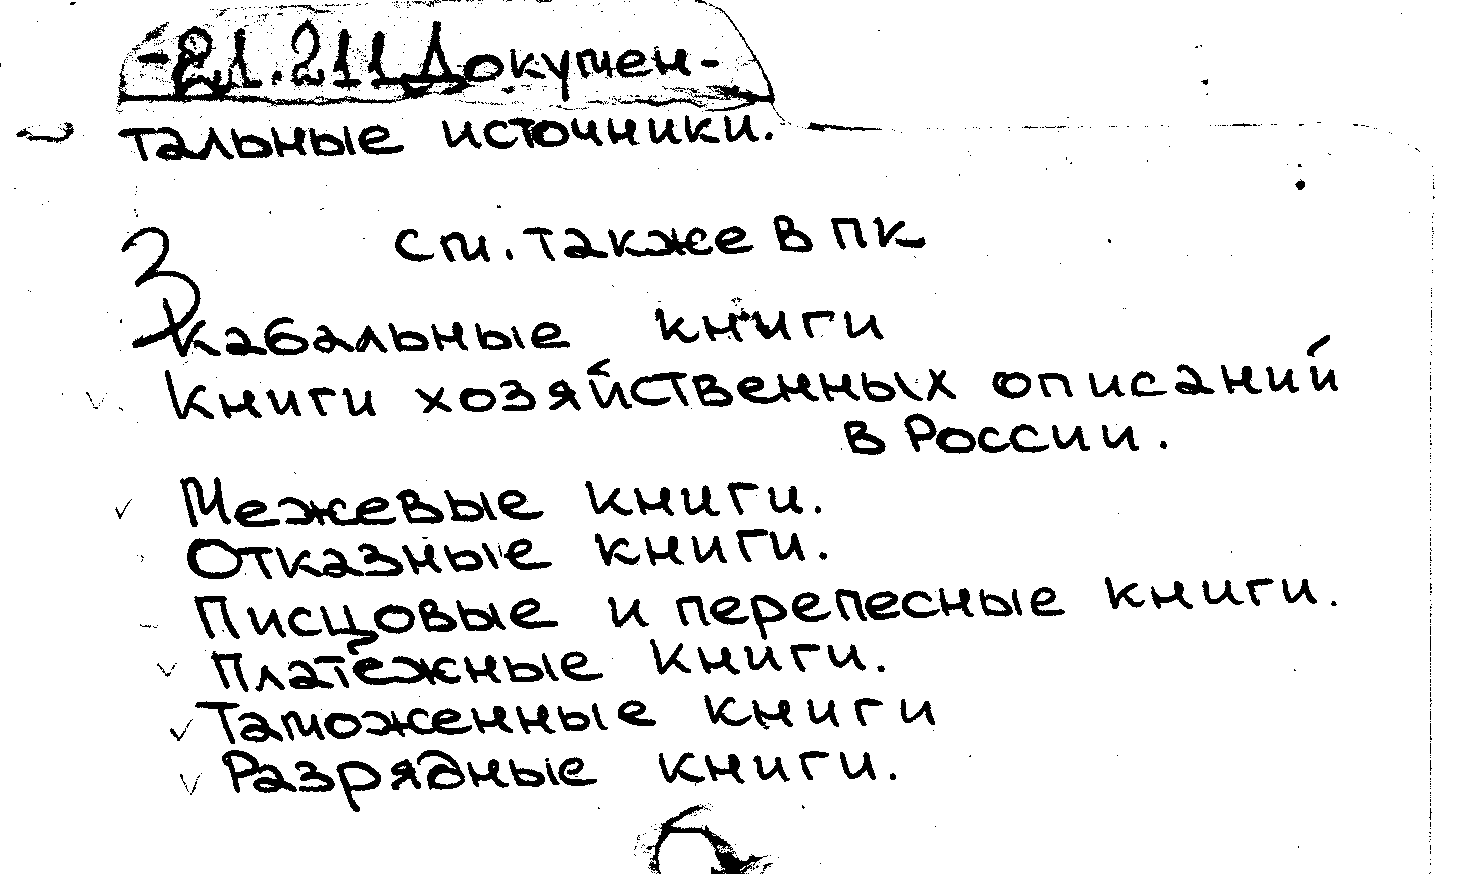 -21.211 Докумен-
тальные источники.
см. также в ПК
3
Кабальные книги
Книги хозяйственных описаний
в России.
Межевые книги.
Отказные книги.
Писцовые и переписные книги.
Платёжные книги.
Таможенные книги
Разрядные книги.